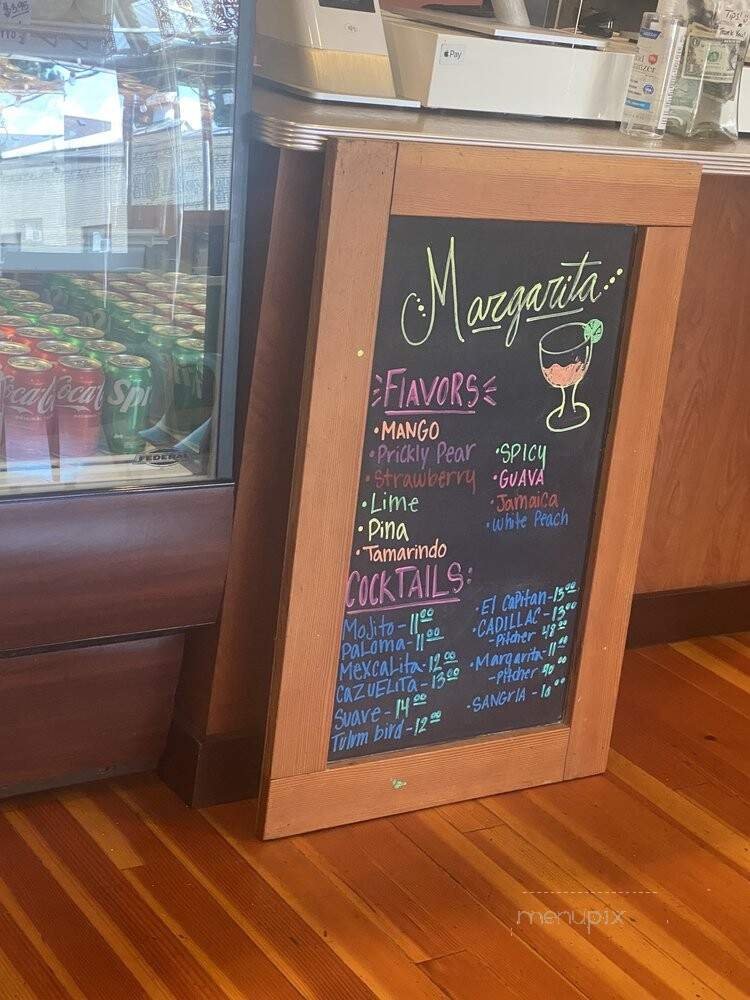 $3.95
Pay
Tips!
Thank You!
Margarita
Flavors
• MANGO
• Prickly Pear
• Strawberry
• Lime
• Pina
• Tamarindo
• SPICY
• GUAVA
• Jamaica
• White Peach
COCKTAILS:
Mojito - 11.00
Paloma - 11.00
Mexcalita - 12.00
CAZUELITA - 13.00
Suave - 14.00
Tulum bird - 12.00
• El Capitan - 13.00
• CADILLAC - 13.00
- Pitcher 48.00
• Margarita - 11.00
- Pitcher 40.00
• SANGRIA - 10.00
Coca
Coca
Spri
FEDERAL
menupix